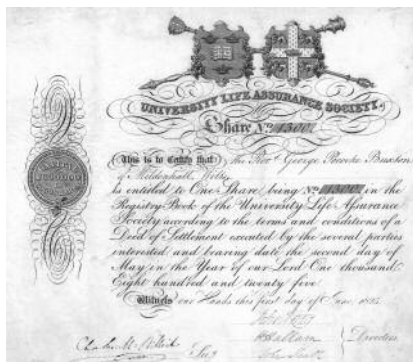 UNIVERSITY LIFE ASSURANCE SOCIETY.
Share No. 1300
This is to Certify that the Revd. George Pocoke
of Mildenhall, Wilts
is entitled to One Share being No. 1300 in the
Registry Book of the University Life Assurance
Society according to the terms and conditions of a
Deed of Settlement executed by the several parties
interested and bearing date the second day of
May in the Year of our Lord One thousand
Eight hundred and twenty five.
Witness our Hands this first day of June
Directors